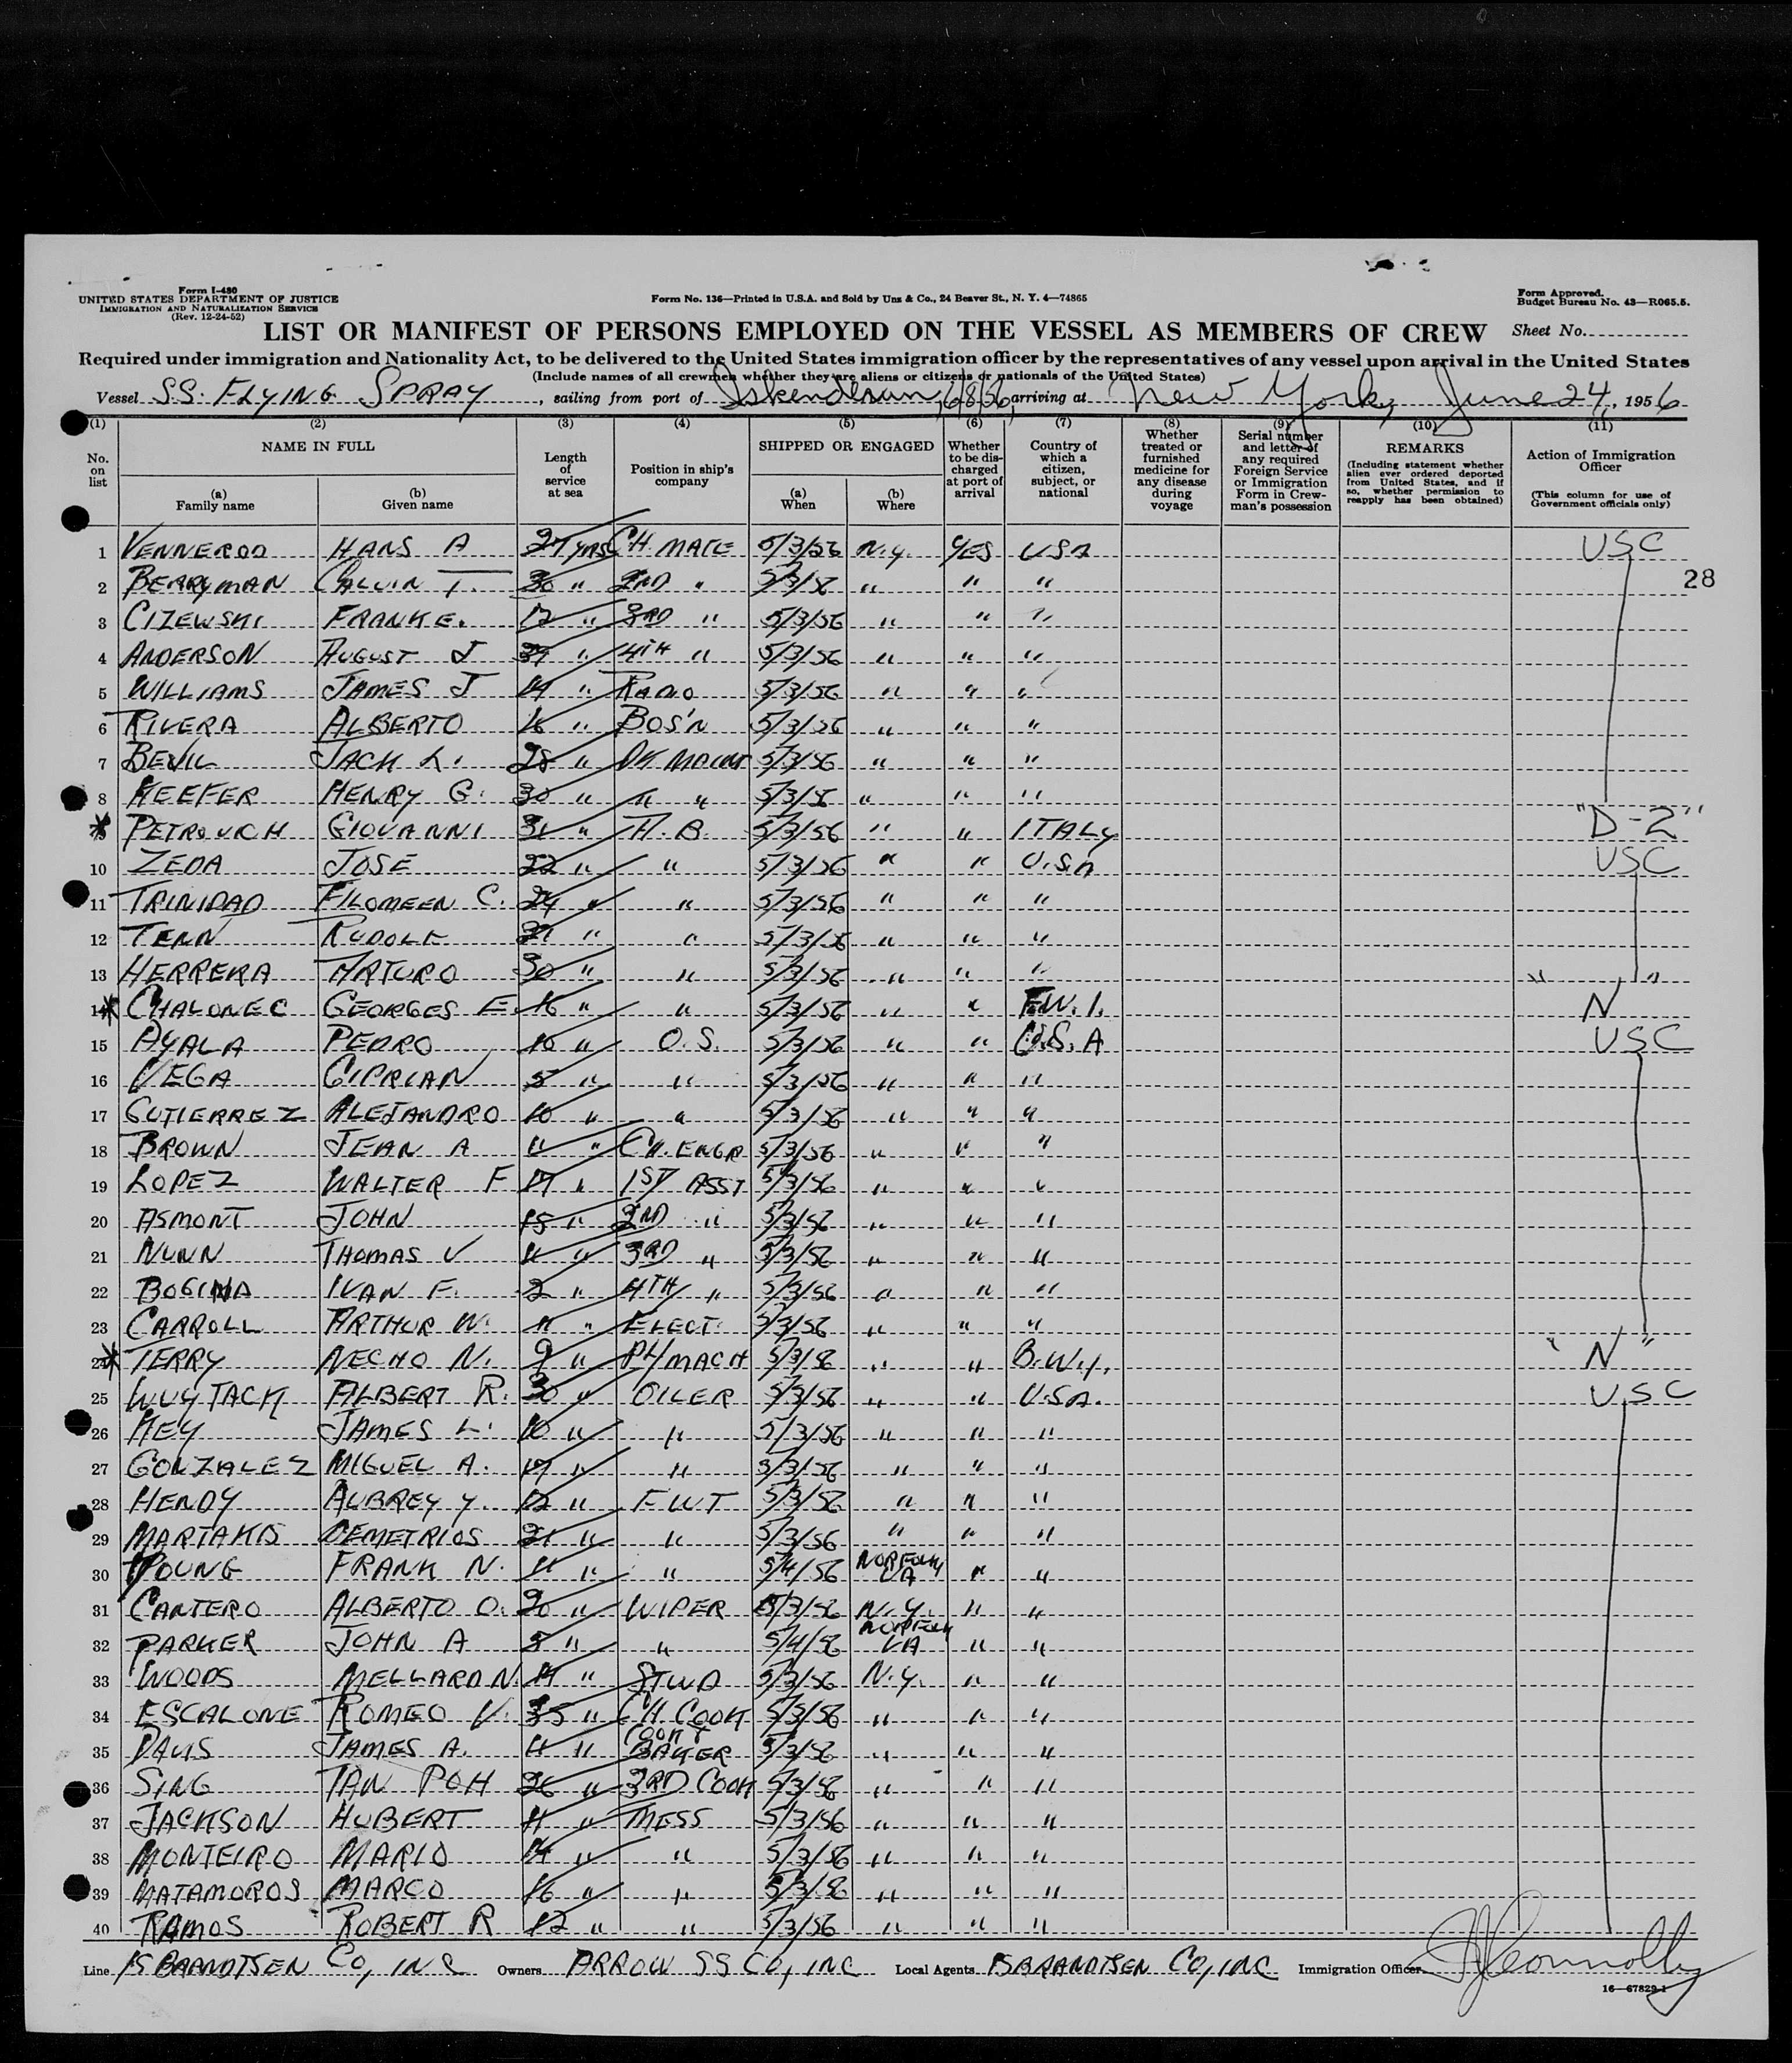 Form I-480
UNITED STATES DEPARTMENT OF JUSTICE
IMMIGRATION AND NATURALIZATION SERVICE
(Rev. 12-24-52)
Form No. 136—Printed in U.S.A. and Sold by Unz & Co., 24 Beaver St., N. Y. 4—74865
Form Approved.
Budget Bureau No. 43—R065.5.
LIST OR MANIFEST OF PERSONS EMPLOYED ON THE VESSEL AS MEMBERS OF CREW Sheet No.
Required under immigration and Nationality Act, to be delivered to the United States immigration officer by the representatives of any vessel upon arrival in the United States
(Include names of all crewmen whether they are aliens or citizens or nationals of the United States)
Vessel S.S. FLYING SPRAY, sailing from port of Iskenderun, 6/8/56, arriving at New York, June 24, 1956
(1) No. on list
(2) NAME IN FULL
(a) Family name
(b) Given name
(3) Length of service at sea
(4) Position in ship's company
(5) SHIPPED OR ENGAGED
(a) When
(b) Where
(6) Whether to be discharged at port of arrival
(7) Country of which a citizen, subject, or national
(8) Whether treated or furnished medicine for any disease during voyage
(9) Serial number and letter of any required Foreign Service or Immigration Form in Crewman's possession
(10) REMARKS (Including statement whether alien ever ordered deported from United States, and if so, whether permission to reapply has been obtained)
(11) Action of Immigration Officer (This column for use of Government officials only)
1 VENNEROD HANS A 27 YRS CH. MATE 5/3/56 N.Y. YES USA USC
28
2 BERRYMAN CALVIN T. 30 " 2ND " 5/3/56 " " "
3 CIZEWSKI FRANK E. 12 " 3RD " 5/3/56 " " "
4 ANDERSON AUGUST J 39 " 4TH " 5/3/56 " " "
5 WILLIAMS JAMES J 14 " RADIO 5/3/56 " " "
6 RIVERA ALBERTO 16 " BOS'N 5/3/56 " " "
7 BEVIL JACK L. 28 " DK MAINT 5/3/56 " " "
8 KEEFER HENRY G. 30 " " " 5/3/56 " " "
9 PETROVICH GIOVANNI 31 " A.B. 5/3/56 " " ITALY "D-2"
10 ZEDA JOSE 22 " " 5/3/56 " " U.S.A USC
11 TRINIDAD FILOMEEN C. 24 " " 5/3/56 " " "
12 TERN RUDOLF 31 " " 5/3/56 " " "
13 HERRERA ARTURO 30 " " 5/3/56 " " "
14 CHALONEC GEORGES E. 16 " " 5/3/56 " " F.W.I. "N"
15 AYALA PEDRO 10 " O.S. 5/3/56 " " U.S.A USC
16 VEGA CIPRIAN 5 " " 5/3/56 " " "
17 GUTIERREZ ALEJANDRO 10 " " 5/3/56 " " "
18 BROWN JEAN A 11 " CH. ENGR 5/3/56 " " "
19 LOPEZ WALTER F 17 " 1ST ASST 5/3/56 " " "
20 ASMONT JOHN 15 " 2ND " 5/3/56 " " "
21 NUNN THOMAS V 11 " 3RD " 5/3/56 " " "
22 IVAN F. 2 " 4TH " 5/3/56 " " "
23 CARROLL ARTHUR W. 11 " ELECT. 5/3/56 " " "
24 TERRY NECHO N. 9 " P/MACH 5/3/56 " " B.W.I. "N"
25 WUYTACK ALBERT R. 30 " OILER 5/3/56 " " U.S.A. USC
26 KEY JAMES L. 10 " " 5/3/56 " " "
27 GONZALEZ MIGUEL A. 17 " " 5/3/56 " " "
28 HENDY AUBREY Y. 12 " F.W.T 5/3/56 " " "
29 MARTAKIS DEMETRIOS 21 " " 5/3/56 " " "
30 YOUNG FRANK N. 11 " " 5/4/56 NORFOLK, VA " "
31 CANTERO ALBERTO O. 20 " WIPER 5/3/56 N.Y. " "
32 PARKER JOHN A 5 " " 5/4/56 NORFOLK VA " "
33 WOODS MELLARD N. 14 " STWD 5/3/56 N.Y. " "
34 ESCALONE ROMEO V. 35 " CH. COOK 5/3/56 " " "
35 DAVIS JAMES A. 11 " COOK & BAKER 5/3/56 " " "
36 SING TAN POH 26 " 3RD COOK 5/3/56 " " "
37 JACKSON HUBERT 11 " MESS 5/3/56 " " "
38 MONTEIRO MARIO 14 " " 5/3/56 " " "
39 MATAMOROS MARCO 16 " " 5/3/56 " " "
40 RAMOS ROBERT R 12 " " 5/3/56 " " "
Line ISBRANDTSEN CO, INC Owners ARROW SS CO, INC Local Agents ISBRANDTSEN CO, INC Immigration Officer Connolly
16—67829-1